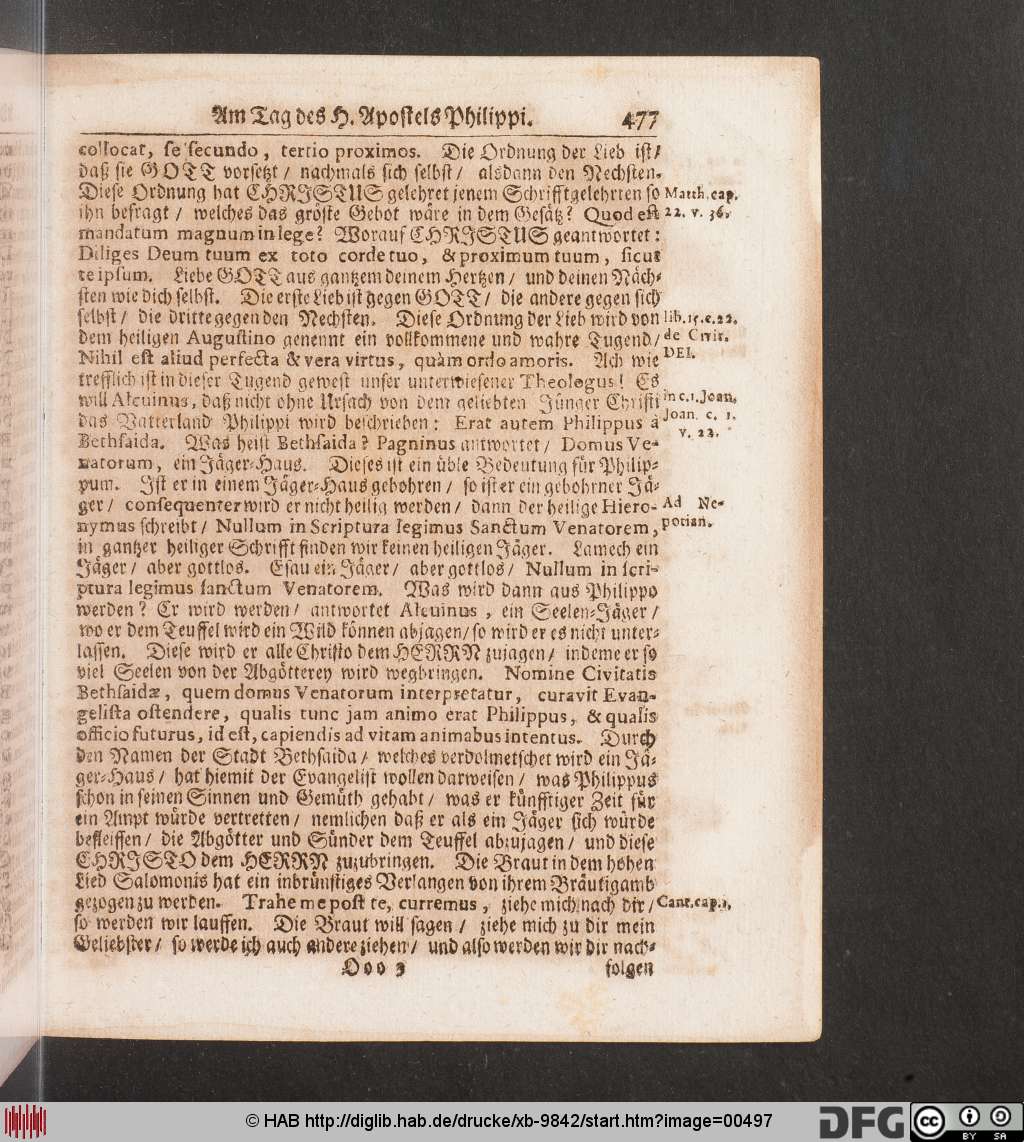 Am Tag des H. Apostels Philippi. 477
collocat, se secundo, tertio proximos. Die Ordnung der Lieb ist/
daß sie GOTT vorsetzt / nachmals sich selbst / alsdann den Nechsten.
Diese Ordnung hat CHRISTUS gelehret jenem Schrifftgelehrten so
Matth. cap.
ihn befragt / welches das gröste Gebot wäre in dem Gesätz? Quod est
22. v. 36.
mandatum magnum in lege? Worauf CHRISTUS geantwortet:
Diliges Deum tuum ex toto corde tuo, & proximum tuum, sicut
te ipsum. Liebe GOTT aus gantzem deinem Hertzen / und deinen Näch-
sten wie dich selbst. Die erste Lieb ist gegen GOTT / die andere gegen sich
selbst / die dritte gegen den Nechsten. Diese Ordnung der Lieb wird von
lib. 15. c. 22.
dem heiligen Augustino genennt ein vollkommene und wahre Tugend/
de Civit.
Nihil est aliud perfecta & vera virtus, quàm ordo amoris. Ach wie
DEI.
trefflich ist in dieser Tugend gewest unser unterwiesener Theologus! Es
will Alcuinus, daß nicht ohne Ursach von dem geliebten Jünger Christi
in c. 1. Joan.
das Vatterland Philippi wird beschrieben: Erat autem Philippus à
Joan. c. 1.
Bethsaida. Was heist Bethsaida? Pagninus antwortet / Domus Ve-
v. 22.
natorum, ein Jäger-Haus. Dieses ist ein üble Bedeutung für Philip-
pum. Ist er in einem Jäger-Haus gebohren / so ist er ein gebohrner Jä-
ger / consequenter wird er nicht heilig werden / dann der heilige Hiero-
Ad Ne-
nymus schreibt / Nullum in Scriptura legimus Sanctum Venatorem,
potian.
in gantzer heiliger Schrifft finden wir keinen heiligen Jäger. Lamech ein
Jäger / aber gottlos. Esau ein Jäger / aber gottlos / Nullum in scri-
ptura legimus sanctum Venatorem. Was wird dann aus Philippo
werden? Er wird werden / antwortet Alcuinus, ein Seelen-Jäger /
wo er dem Teuffel wird ein Wild können abjagen / so wird er es nicht unter-
lassen. Diese wird er alle Christo dem HERRN zujagen / indeme er so
viel Seelen von der Abgötterey wird wegbringen. Nomine Civitatis
Bethsaidæ, quem domus Venatorum interpretatur, curavit Evan-
gelista ostendere, qualis tunc jam animo erat Philippus, & qualis
officio futurus, id est, capiendis ad vitam animabus intentus. Durch
den Namen der Stadt Bethsaida / welches verdolmetschet wird ein Jä-
ger-Haus / hat hiemit der Evangelist wollen darweisen / was Philippus
schon in seinen Sinnen und Gemüth gehabt / was er künfftiger Zeit für
ein Ampt würde vertretten / nemlichen daß er als ein Jäger sich würde
befleissen / die Abgötter und Sünder dem Teuffel abzujagen / und diese
CHRISTO dem HERRN zuzubringen. Die Braut in dem hohen
Lied Salomonis hat ein inbrünstiges Verlangen von ihrem Bräutigamb
gezogen zu werden. Trahe me post te, curremus, ziehe mich nach dir /
Cant. cap. 1.
so werden wir lauffen. Die Braut will sagen / ziehe mich zu dir mein
Geliebster / so werde ich auch andere ziehen / und also werden wir dir nach-
Ooo 3 folgen
© HAB http://diglib.hab.de/drucke/xb-9842/start.htm?image=00497
DFG cc BY SA